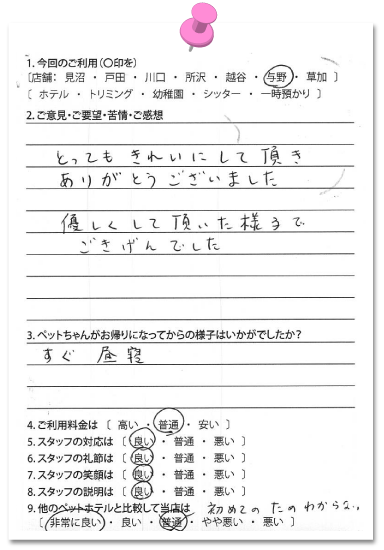 1. 今回のご利用（〇印を）
〔店舗： 見沼 ・ 戸田 ・ 川口 ・ 所沢 ・ 越谷 ・ 与野 ・ 草加 〕
〔 ホテル ・ トリミング ・ 幼稚園 ・ シッター ・ 一時預かり 〕
2. ご意見・ご要望・苦情・ご感想
とっても きれいにして頂き
ありがとうございました
優しくして頂いた様子で
ごきげんでした
3. ペットちゃんがお帰りになってからの様子はいかがでしたか？
すぐ 昼寝
4. ご利用料金は 〔 高い ・ 普通 ・ 安い 〕
5. スタッフの対応は 〔 良い ・ 普通 ・ 悪い 〕
6. スタッフの礼節は 〔 良い ・ 普通 ・ 悪い 〕
7. スタッフの笑顔は 〔 良い ・ 普通 ・ 悪い 〕
8. スタッフの説明は 〔 良い ・ 普通 ・ 悪い 〕
9. 他のペットホテルと比較して当店は 初めての
〔 非常に良い ・ 良い ・ 普通 ・ やや悪い ・ 悪い 〕